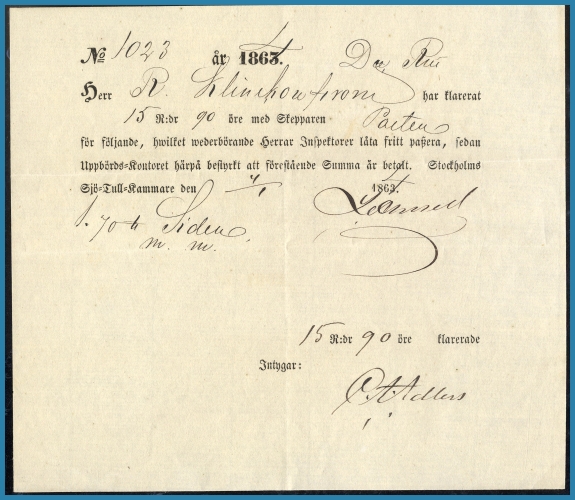 No 1023 år 1864.
Herr R. Klinckowström har klarerat
15 R:dr 90 öre med Skepparen Posten
för följande, hwilket wederbörande Herrar Inspektorer låta fritt paßera, sedan
Uppbörds-Kontoret härpå bestyrkt att förestående Summa är betalt. Stockholms
Sjö-Tull-Kammare den 4/1 1864.
1. 70 Siden
m. m.
15 R:dr 90 öre klarerade
Intygar: